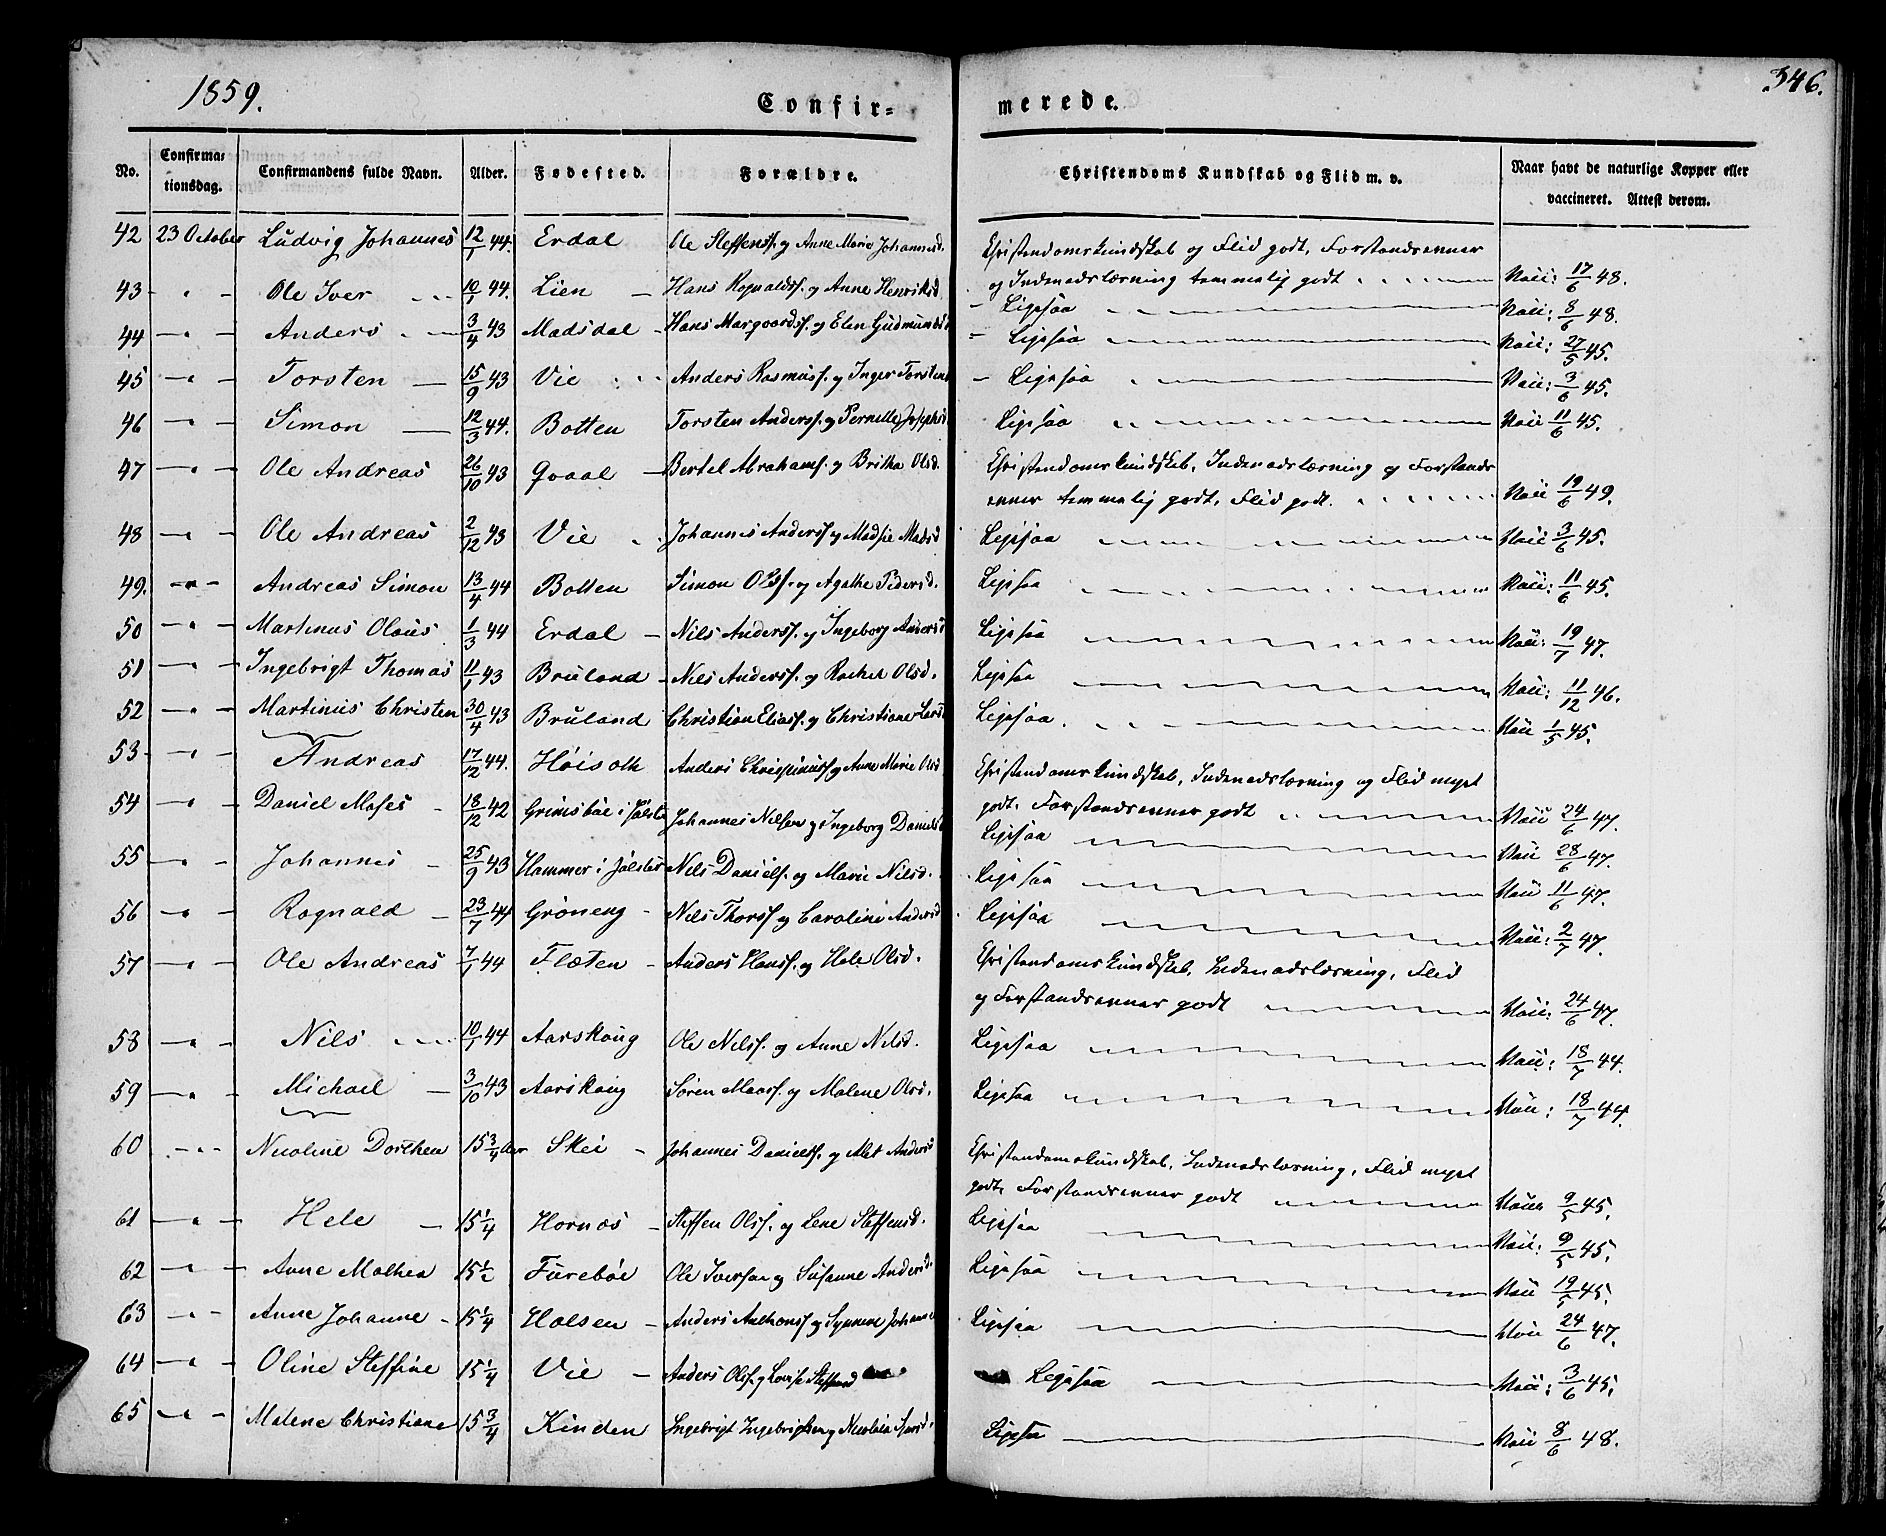 1859.
346.
Confir=
merede.
No. Confirma= tionsdag. Confirmandens fulde Navn. Alder. Fødested. Forældre. Christendoms Kundskab og Flid m. v. Naar havt de naturlige Kopper eller vaccineret. Attest derom.
42 23 October Ludvig Johannes 12/1 44. Erdal Ole Steffenss. og Anne Marie Johannesd. Christendomskundskab og Flid godt, Forstandsevner
og Indenadslæsning temmelig godt Vaii: 17/6 48.
43 - " - Ole Iver 10/1 44. Lien - Hans Rognaldss. og Anne Henriksd. - Ligesaa Vaii: 8/6 48.
44 - " - Anders 3/4 43 Madsdal - Hans Margaardss. og Elen Gudmundsd - Ligesaa Vaii: 27/5 45.
45 - " - Torsten - 15/9 43 Vie Anders Rasmuss. og Inger Torstens - Ligesaa Vaii: 3/6 45.
46 - " - Simon - 12/3 44. Botten Torsten Anderss. og Pernille Josephsd Ligesaa Vaii 11/6 45.
47 - " - Ole Andreas 26/10 43 Qvaal - Bertel Abrahams. og Britha Olsd. Christendomskundskab, Indenadslæsning og Forstands
evner temmelig godt, Flid godt. Vaii 19/6 49.
48 - " - Ole Andreas 2/12 43 Vie Johannes Anderss og Madsie Madsd Ligesaa Vaii 3/6 45.
49. - " - Andreas Simon 13/4 44 Botten Simon Olss. og Agathe Pedersd. Ligesaa Vaii: 11/6 45.
50 - " - Martinus Olaus 1/3 44 Erdal - Nils Anderss. og Ingeborg Andersd Ligesaa Vaii: 19/7 47.
51 - " - Ingebrigt Thomas 11/1 43 Bruland - Nils Anderss. og Rachel Olsd. Ligesaa Vaii: 11/12 46.
52 - " - Martinus Christen 30/4 43 Bruland Christian Eliass. og Christiane Larsd Ligesaa Vaii 1/5 45.
53 - " - Andreas 17/12 44. Høisæth Anders Chrispinuss og Anne Marie Olsd Christendomskundskab, Indenadslæsning og Flid meget
godt, Forstandsevner godt Vaii 24/6 47.
54 - " - Daniel Moses - 18/12 42 Grimsbøe i Jølster Johannes Nilsen og Ingeborg Danielsd Ligesaa Vaii 28/6 47.
55 - " - Johannes - 25/9 43 Hammer i Jølster Nils Daniels. og Marie Nilsd. Ligesaa Vaii 11/6 47.
56 - " - Rognald - 23/7 44 Grøneng - Nils Thorss og Caroline Andersd Ligesaa Vaii: 2/7 47.
57 - " - Ole Andreas 7/1 44 Flæten - Anders Hanss. og Hele Olsd. Christendomskundskab, Indenadslæsning, Flid
og Forstandsevner godt Vaii: 24/6 47.
58 - " - Nils 10/1 44 Aarskoug Ole Nilss. og Anne Nilsd. Ligesaa Vaii: 18/7 44.
59 - " - Michael - 3/10 43 Aarskoug Søren Maass. og Malene Olsd. Ligesaa Vaii: 18/7 44.
60 - " - Nicoline Dorthea 15 3/4 Aar Skei - Johannes Danielss. og Alet Andersd Christendomskundskab, Indenadslæsning, Flid meget
godt, Forstandsevner godt Vaii 9/5 45.
61 - " - Hele - 15 1/4 Hornæs - Steffen Olss. og Lene Steffensd. Ligesaa Vaii: 9/5 45.
62 - " - Anne Mathea 15 1/2 Furebøe Ole Iversen og Susanne Andersd. Ligesaa Vaii 19/5 45.
63 - " - Anne Johanne - 15 1/4 Holsen - Anders Anthonss og Synneve Johanne Ligesaa Vaii 24/6 47.
64 - " - Oline Steffine 15 1/4 Vie - Anders Olss. og Lovise Steffensd Ligesaa Vaii: 3/6 45.
65 - " - Malene Christiane 15 3/4 Kinden Ingebrigt Ingebrigtsen og Nicolaia Ligesaa Vaii 8/6 48.